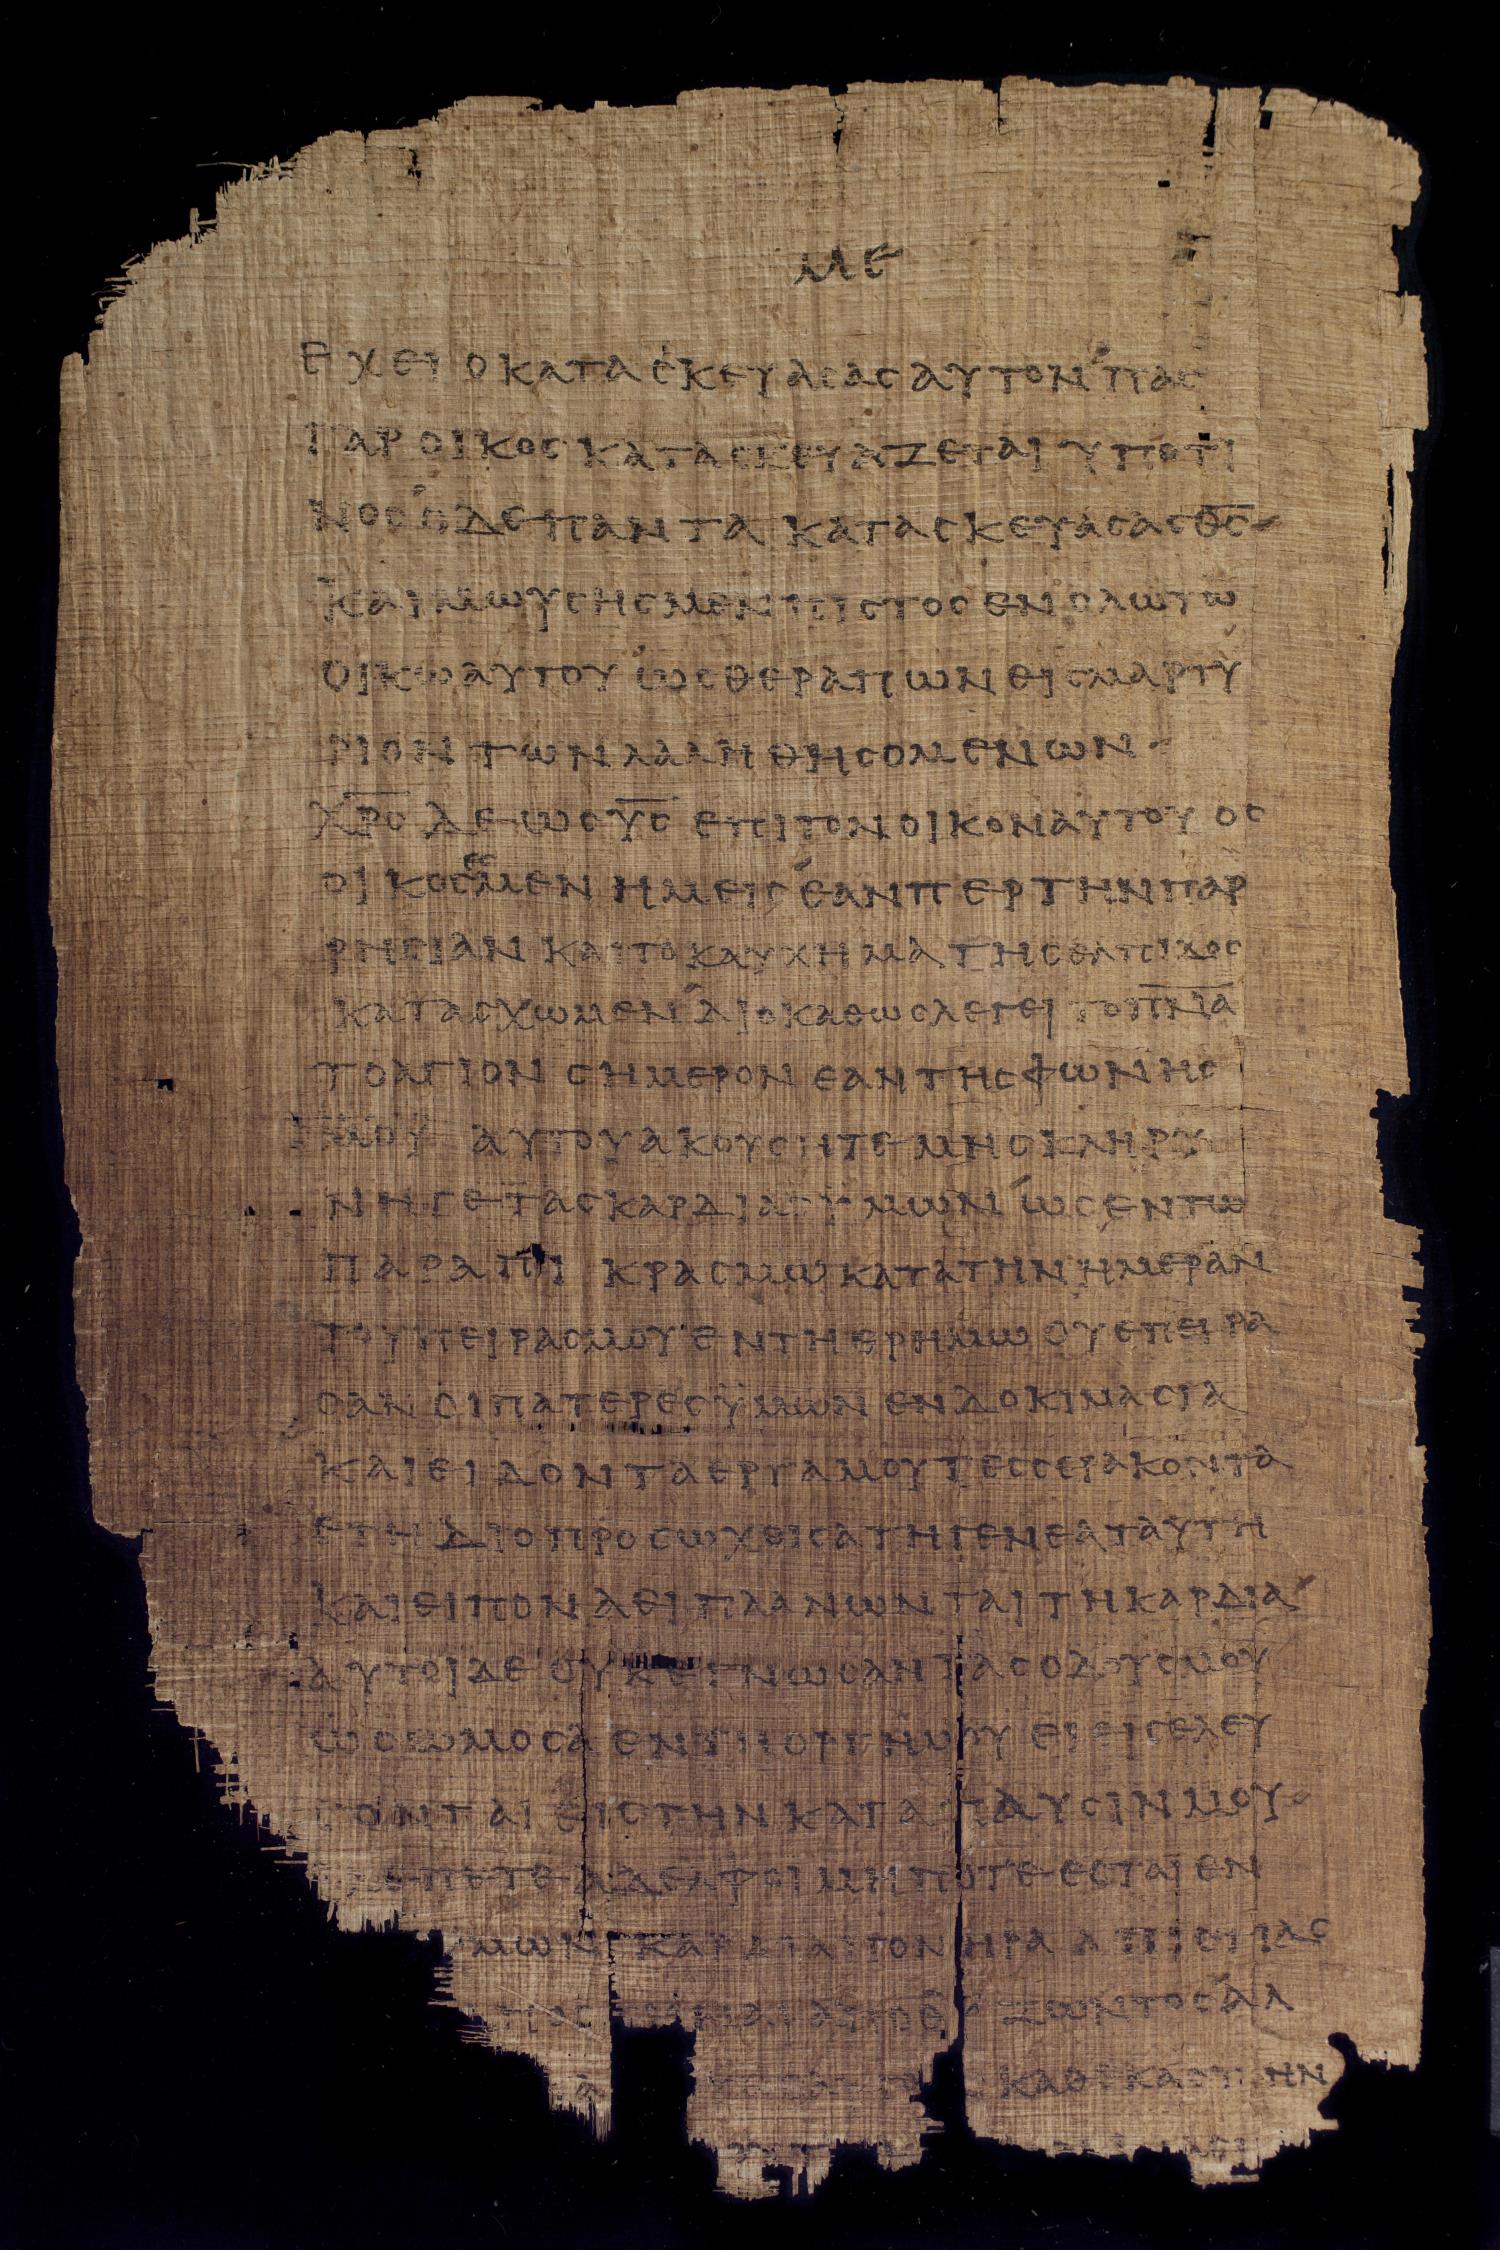 ΜΕ
ΕΧΕΙ Ο ΚΑΤΑΣΚΕΥΑΣΑΣ ΑΥΤΟΝ ΠΑΣ
ΓΑΡ ΟΙΚΟΣ ΚΑΤΑΣΚΕΥΑΖΕΤΑΙ ΥΠΟ ΤΙ
ΝΟΣ Ο ΔΕ ΠΑΝΤΑ ΚΑΤΑΣΚΕΥΑΣΑΣ Θ̅Σ̅
ΚΑΙ ΜΩΥΣΗΣ ΜΕΝ ΠΙΣΤΟΣ ΕΝ ΟΛΩ ΤΩ
ΟΙΚΩ ΑΥΤΟΥ ΩΣ ΘΕΡΑΠΩΝ ΕΙΣ ΜΑΡΤΥ
ΡΙΟΝ ΤΩΝ ΛΑΛΗΘΗΣΟΜΕΝΩΝ
Χ̅Ρ̅Σ̅ ΔΕ ΩΣ Υ̅Σ̅ ΕΠΙ ΤΟΝ ΟΙΚΟΝ ΑΥΤΟΥ ΟΣ
ΟΙΚΟΣ ΕΣΜΕΝ ΗΜΕΙΣ ΕΑΝΠΕΡ ΤΗΝ ΠΑΡ
ΡΗΣΙΑΝ ΚΑΙ ΤΟ ΚΑΥΧΗΜΑ ΤΗΣ ΕΛΠΙΔΟΣ
ΚΑΤΑΣΧΩΜΕΝ ΔΙΟ ΚΑΘΩΣ ΛΕΓΕΙ ΤΟ Π̅Ν̅Α̅
ΤΟ ΑΓΙΟΝ ΣΗΜΕΡΟΝ ΕΑΝ ΤΗΣ ΦΩΝΗΣ
ΜΟΥ ΑΥΤΟΥ ΑΚΟΥΣΗΤΕ ΜΗ ΣΚΛΗΡΥ
ΝΗΤΕ ΤΑΣ ΚΑΡΔΙΑΣ ΥΜΩΝ ΩΣ ΕΝ ΤΩ
ΠΑΡΑΠΙΚΡΑΣΜΩ ΚΑΤΑ ΤΗΝ ΗΜΕΡΑΝ
ΤΟΥ ΠΕΙΡΑΣΜΟΥ ΕΝ ΤΗ ΕΡΗΜΩ ΟΥ ΕΠΕΙΡΑ
ΣΑΝ ΟΙ ΠΑΤΕΡΕΣ ΫΜΩΝ ΕΝ ΔΟΚΙΜΑΣΙΑ
ΚΑΙ ΕΙΔΟΝ ΤΑ ΕΡΓΑ ΜΟΥ ΤΕΣΣΕΡΑΚΟΝΤΑ
ΕΤΗ ΔΙΟ ΠΡΟΣΩΧΘΕΙΣΑ ΤΗ ΓΕΝΕΑ ΤΑΥΤΗ
ΚΑΙ ΕΙΠΟΝ ΑΕΙ ΠΛΑΝΩΝΤΑΙ ΤΗ ΚΑΡΔΙΑ
ΑΥΤΟΙ ΔΕ ΟΥΚ ΕΓΝΩΣΑΝ ΤΑΣ ΟΔΟΥΣ ΜΟΥ
ΩΣ ΩΜΟΣΑ ΕΝ ΤΗ ΟΡΓΗ ΜΟΥ ΕΙ ΕΙΣΕΛΕΥ
ΣΟΝΤΑΙ ΕΙΣ ΤΗΝ ΚΑΤΑΠΑΥΣΙΝ ΜΟΥ
ΛΕΠΕΤΕ ΑΔΕΛΦΟΙ ΜΗΠΟΤΕ ΕΣΤΑΙ ΕΝ
ΥΜΩΝ ΚΑΡΔΙΑ ΠΟΝΗΡΑ ΑΠΙΣΤΙΑΣ
ΖΩΝΤΟΣ ΑΛ
ΚΑΘ ΕΚΑΣΤΗΝ